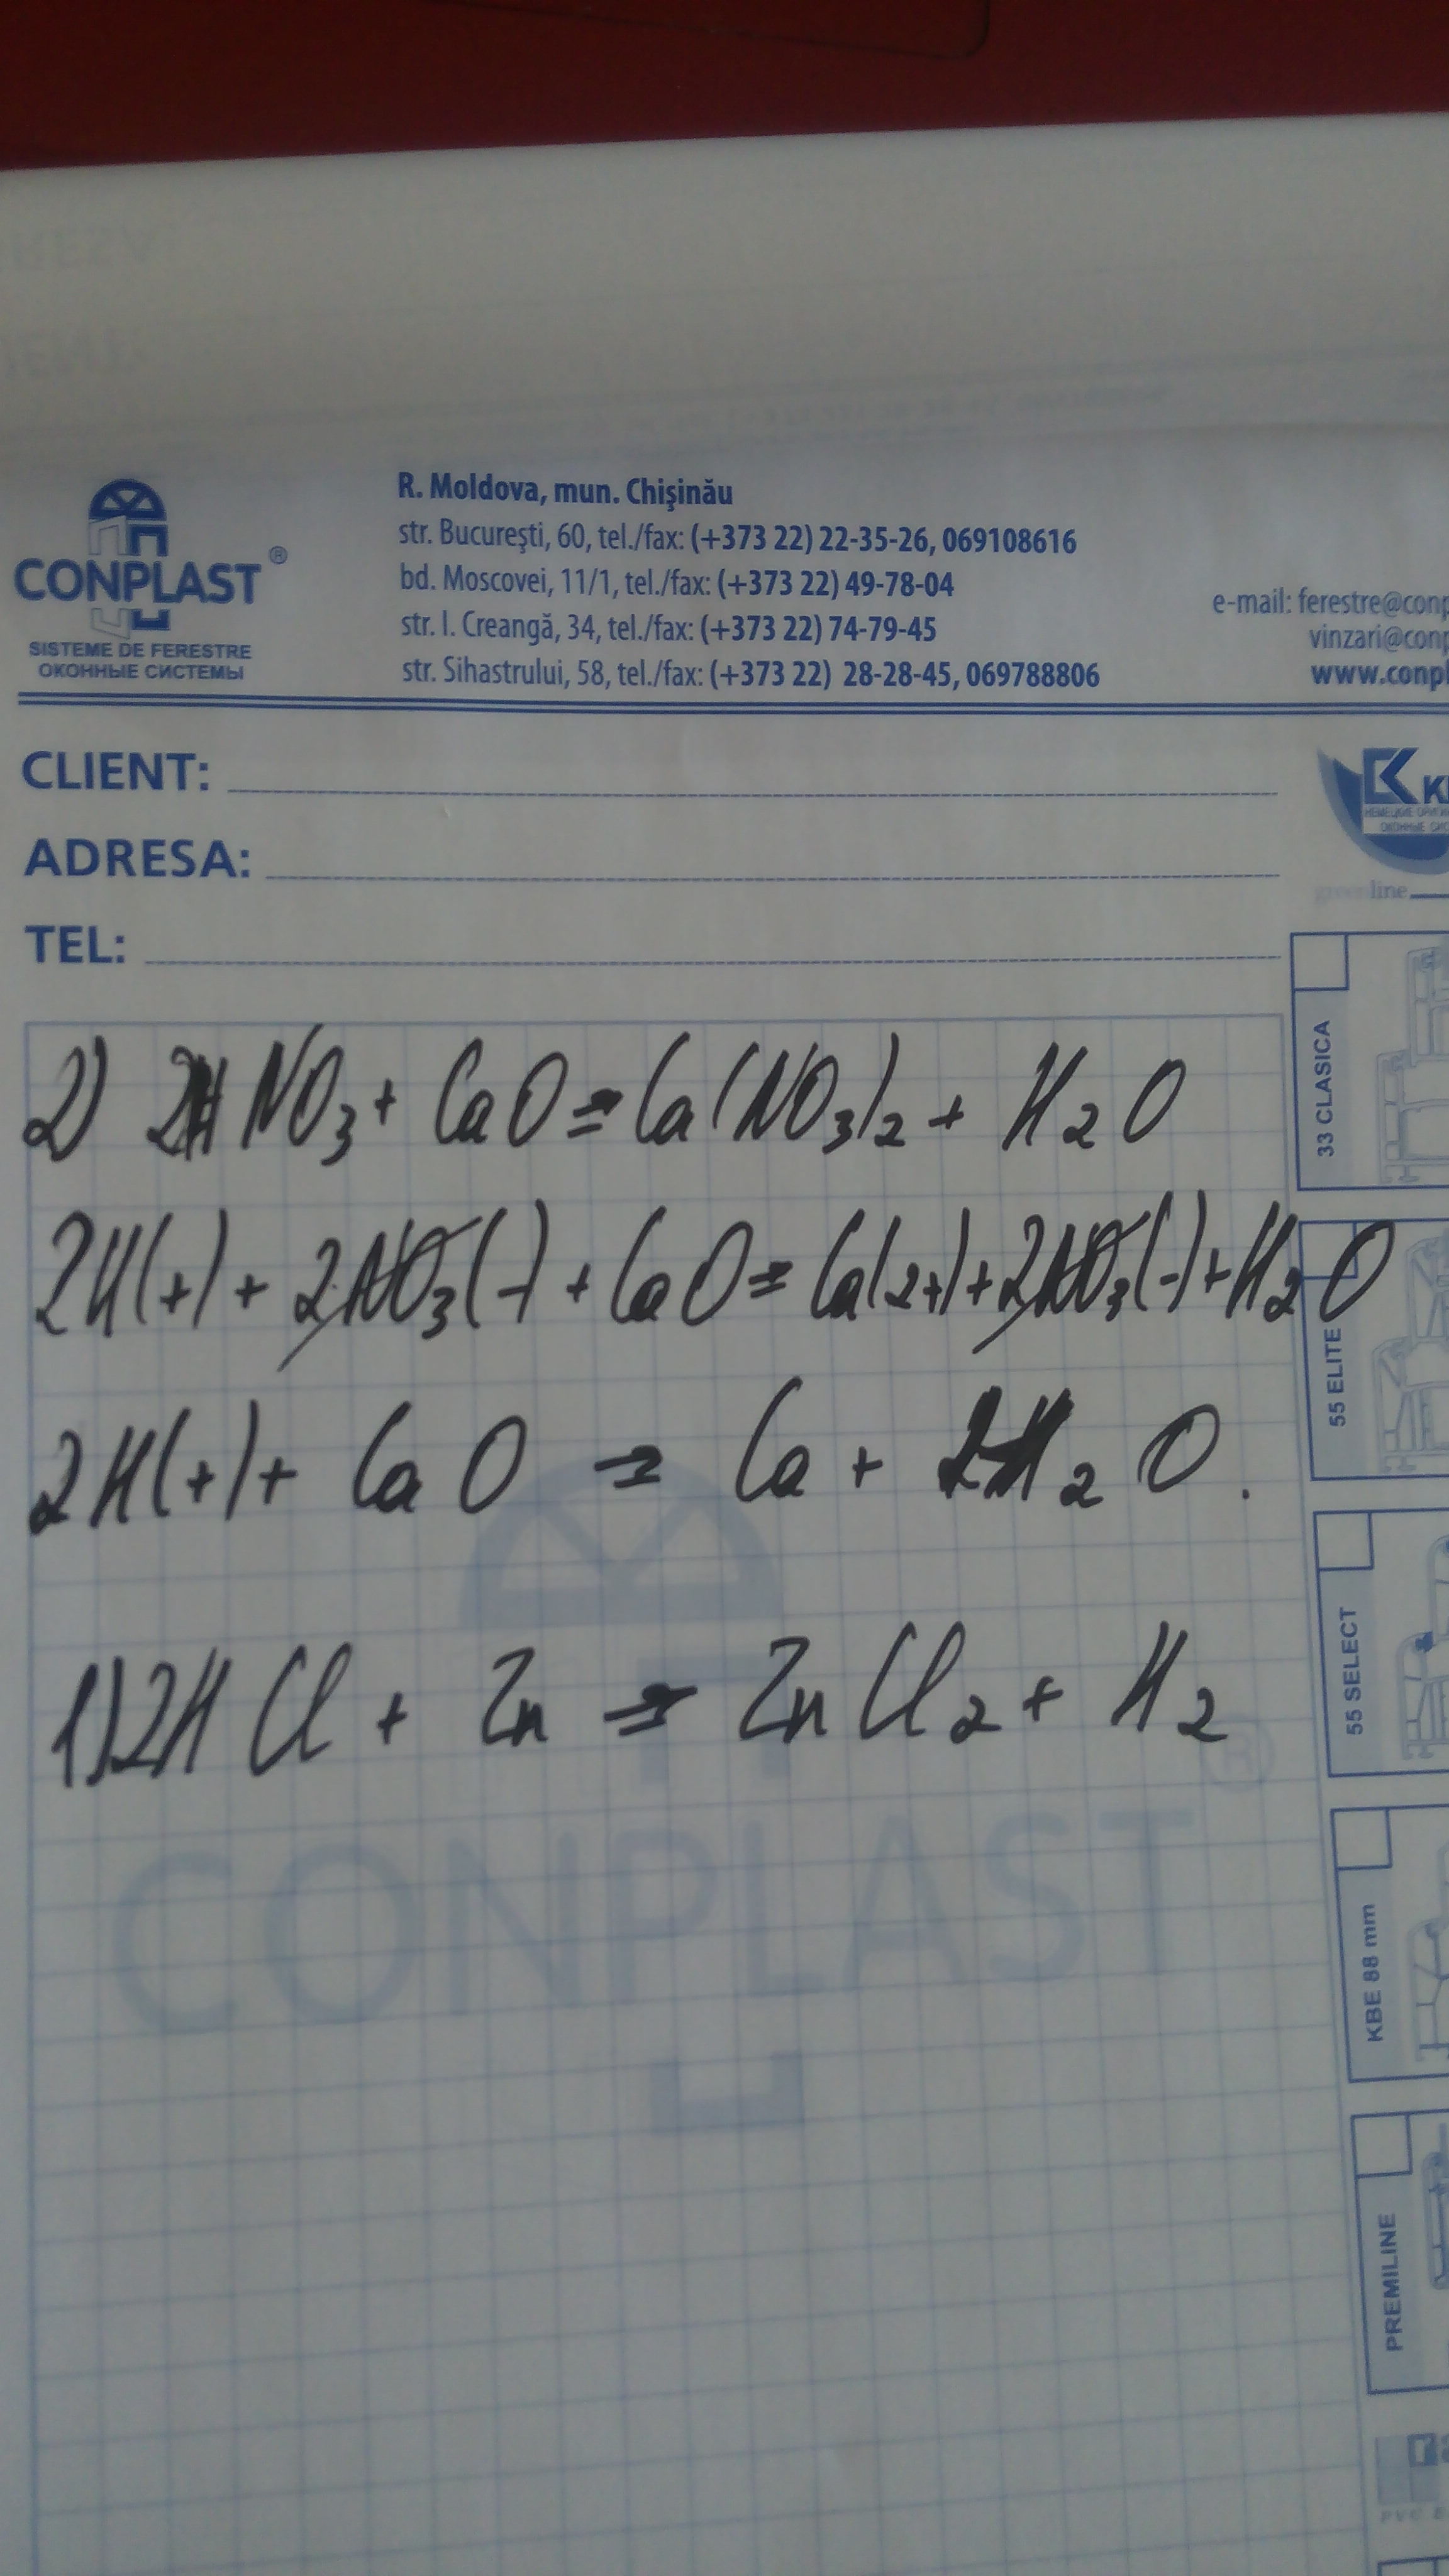 CONPLAST ®
SISTEME DE FERESTRE
ОКОННЫЕ СИСТЕМЫ
R. Moldova, mun. Chişinău
str. Bucureşti, 60, tel./fax: (+373 22) 22-35-26, 069108616
bd. Moscovei, 11/1, tel./fax: (+373 22) 49-78-04
str. I. Creangă, 34, tel./fax: (+373 22) 74-79-45
str. Sihastrului, 58, tel./fax: (+373 22) 28-28-45, 069788806
e-mail: ferestre@conp
vinzari@conp
www.conpl
CLIENT:
ADRESA:
TEL:
greenline
2) 2HNO₃ + CaO = Ca(NO₃)₂ + H₂O
2H(+) + 2NO₃(-) + CaO = Ca(2+) + 2NO₃(-) + H₂O
2H(+) + CaO → Ca + H₂O.
1) 2HCl + Zn → ZnCl₂ + H₂
CONPLAST ®
33 CLASICA
55 ELITE
55 SELECT
KBE 88 mm
PREMILINE